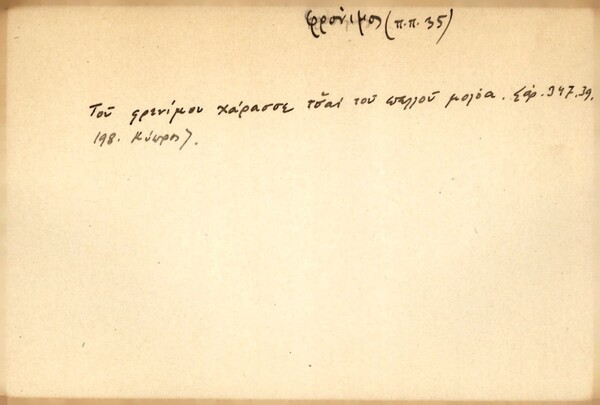 φρόνιμος (π.π. 35)
Τοῦ φρενίμου χάρασσε τσ̌αί τοῦ πελλοῦ μολόα. Ξάρ. 347.39,
198. Κύπρος).